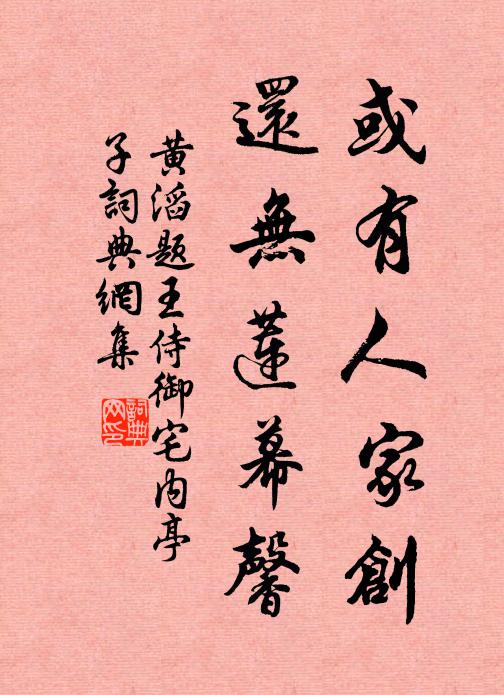 或有人家創
還無蓮幕馨
黄滔题王侍御宅内亭
子詞典網集
詞典
网印